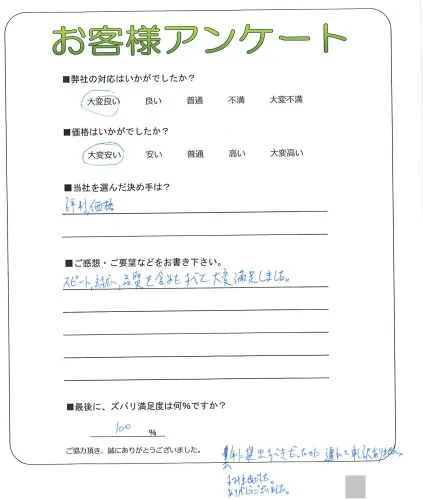 お客様アンケート
■弊社の対応はいかがでしたか？
大変良い 良い 普通 不満 大変不満
■価格はいかがでしたか？
大変安い 安い 普通 高い 大変高い
■当社を選んだ決め手は？
評判、価格
■ご感想・ご要望などをお書き下さい。
スピード、対応、品質を含めすべて大変満足しました。
■最後に、ズバリ満足度は何％ですか？
100 %
ご協力頂き、誠にありがとうございました。
提出すべきだったのに遅れて申し訳ありません。
ありがとうございました。